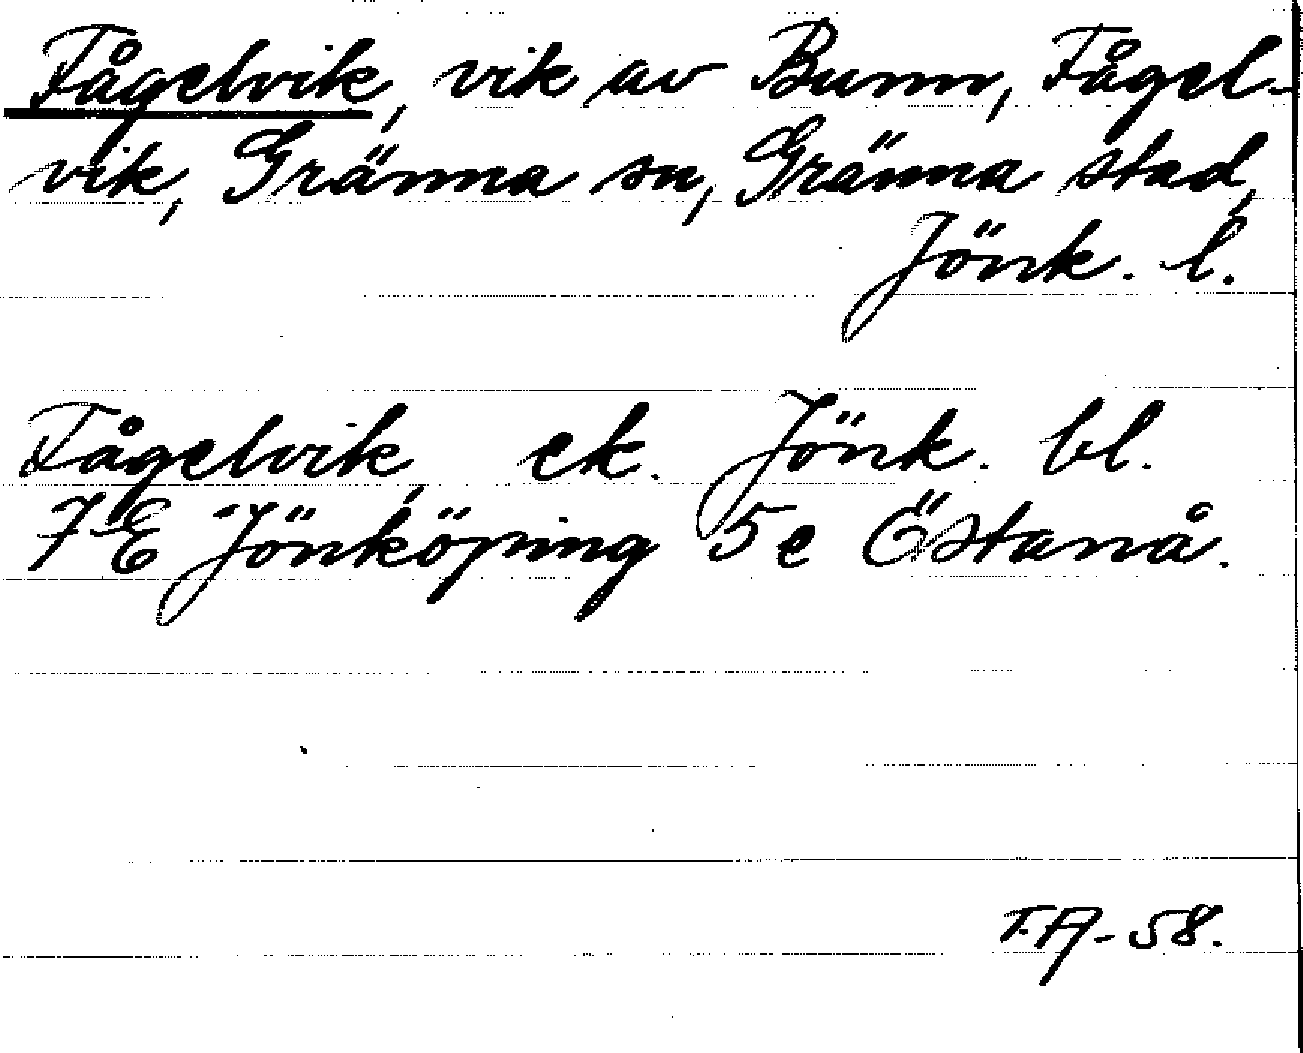 Fågelvik, vik av Bunn, Fågel-
vik, Gränna sn, Gränna stad,
Jönk. l.
Fågelvik, ek. Jönk. bl.
7 E Jönköping 5 e Östanå.
T.A-58.